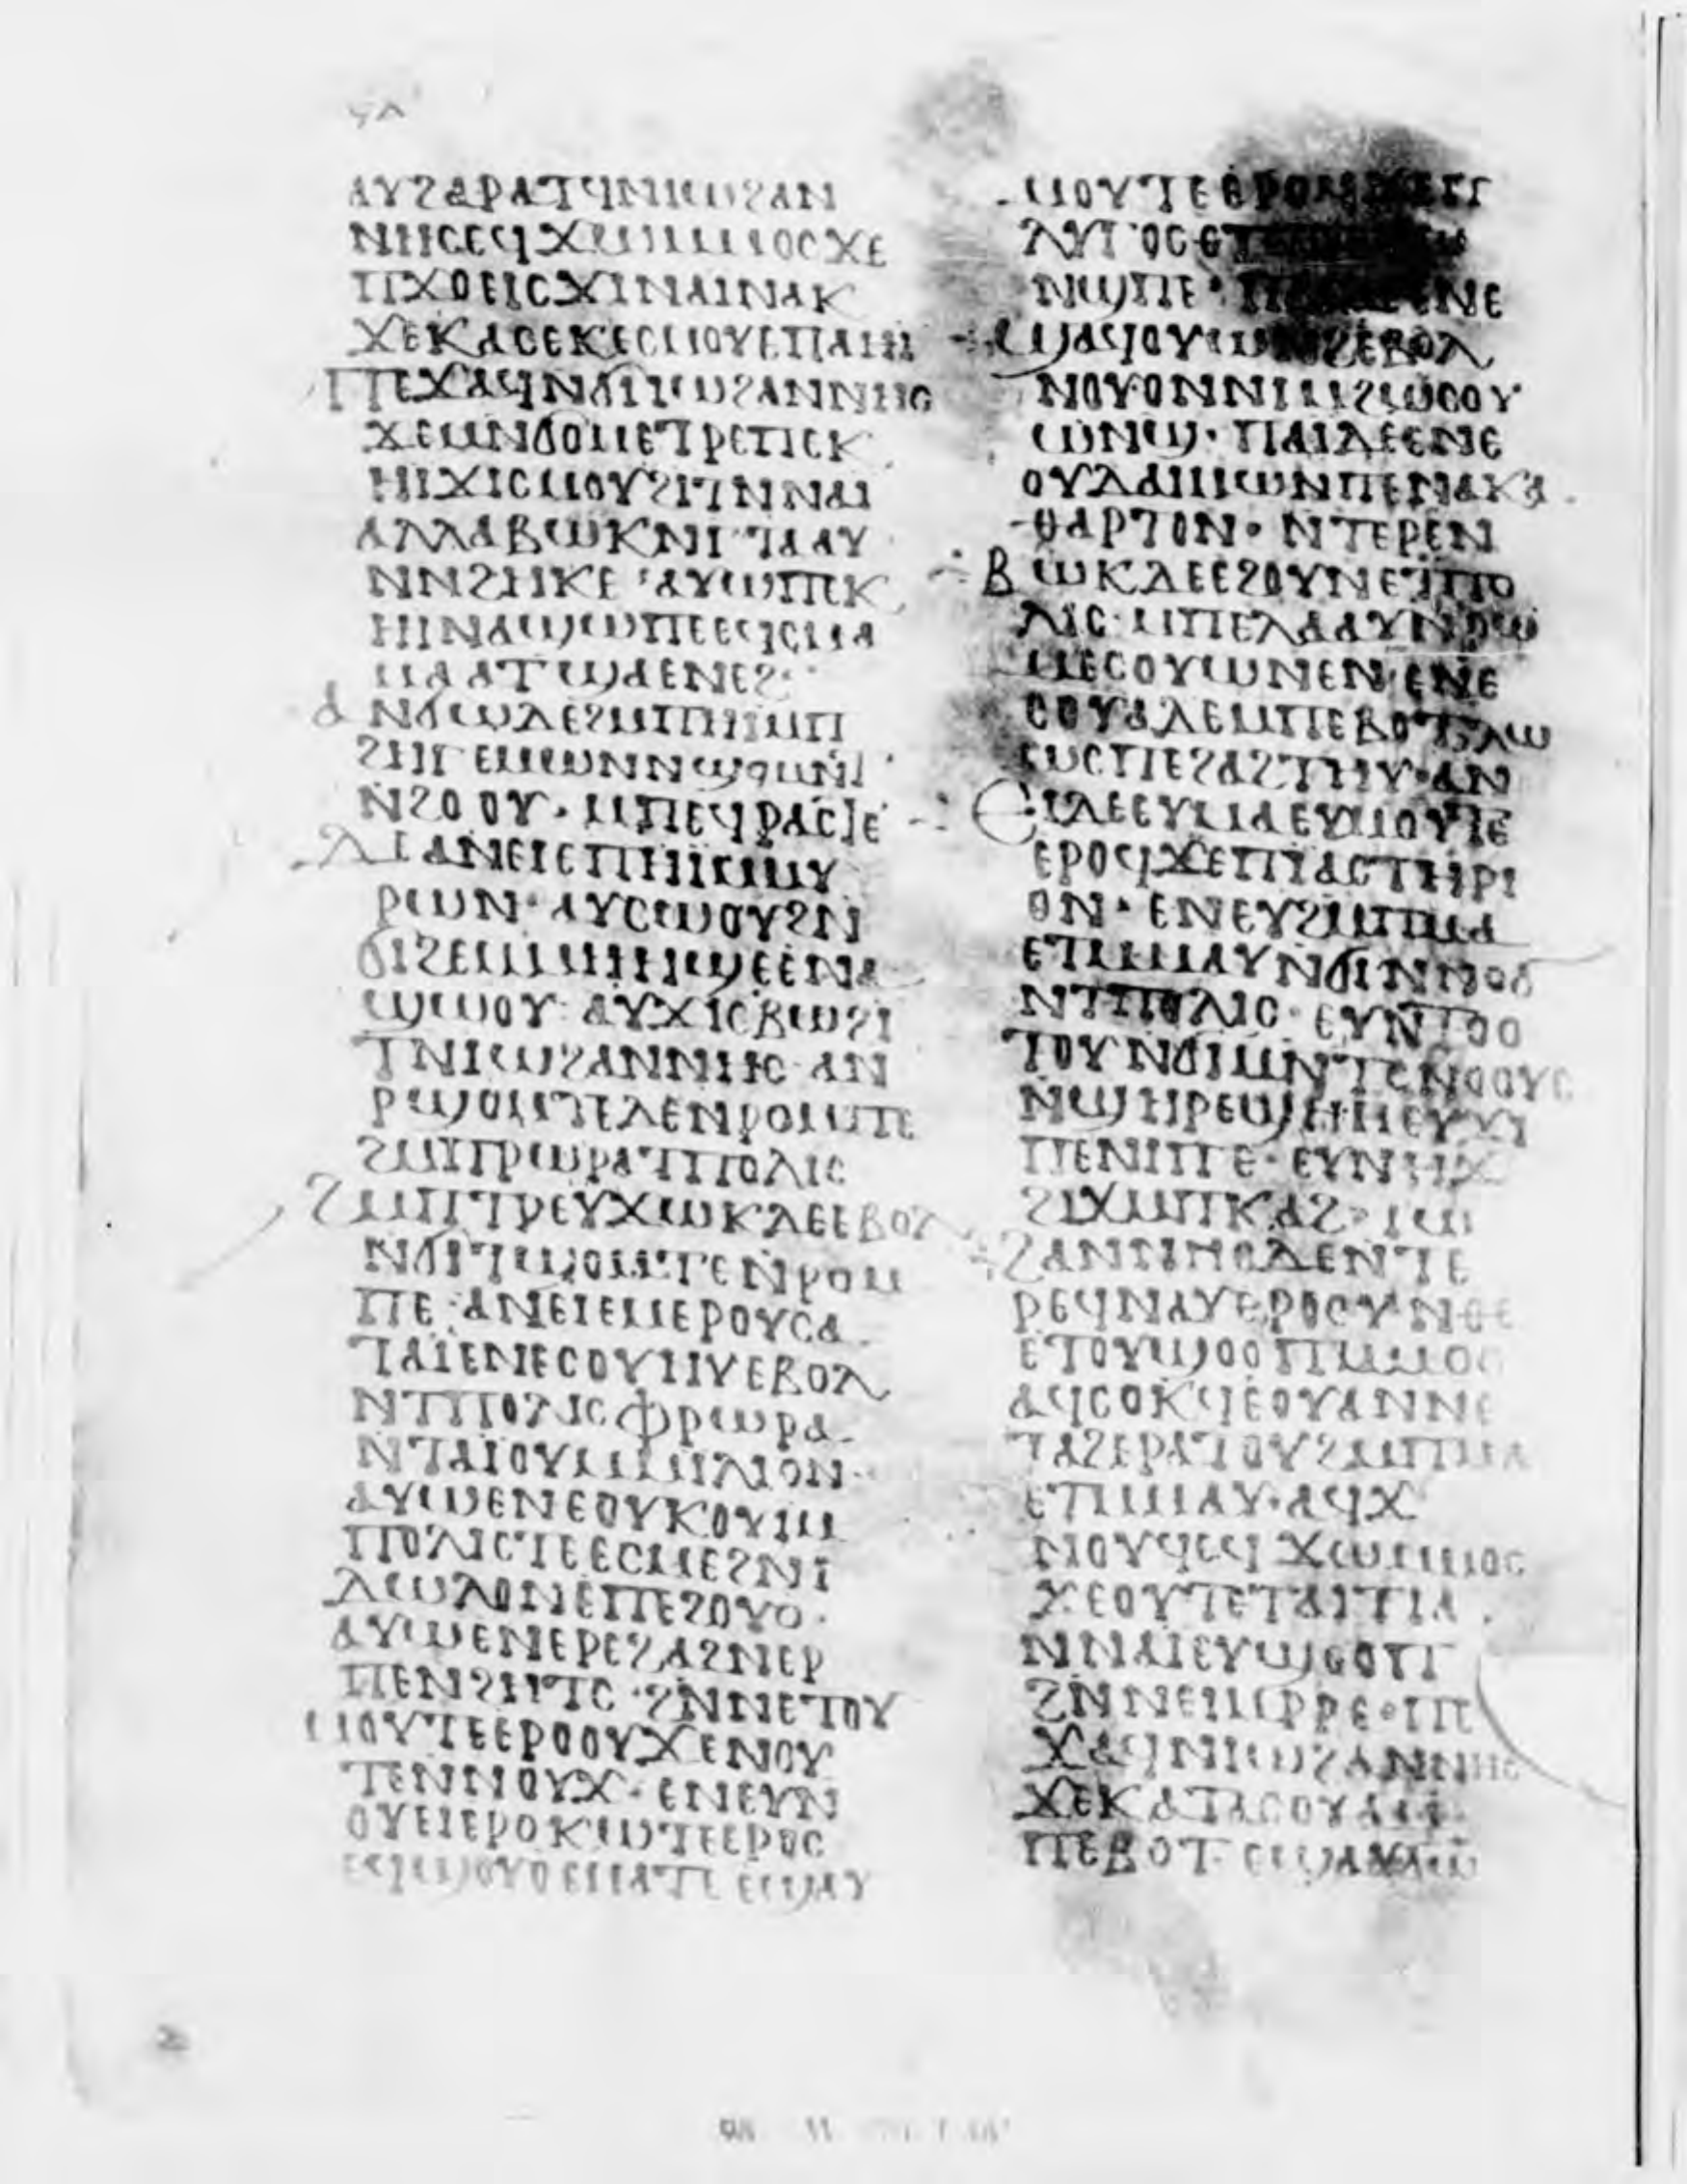 ϥⲁ
ⲁⲩϩⲁⲣⲁⲧϥⲛⲓⲱϩⲁⲛ
ⲛⲏⲥⲉϥϫⲱⲙⲙⲟⲥϫⲉ
ⲡϫⲟⲉⲓⲥϫⲓⲛⲁⲓⲛⲁⲕ
ϫⲉⲕⲁⲥⲉⲕⲉⲥⲙⲟⲩⲉⲡⲁⲏⲓ
ⲡⲉϫⲁϥⲛϭⲓⲓⲱϩⲁⲛⲛⲏⲥ
ϫⲉⲙⲛϭⲟⲙⲉⲧⲣⲉⲡⲉⲕ
ⲏⲓϫⲓⲥⲙⲟⲩϩⲓⲧⲛⲛⲁⲓ
ⲁⲗⲗⲁⲃⲱⲕⲛⲅⲧⲁⲁⲩ
ⲛⲛϩⲏⲕⲉ ⲁⲩⲱⲡⲉⲕ
ⲏⲓⲛⲁϣⲱⲡⲉⲉϥⲥⲙⲁ
ⲙⲁⲁⲧϣⲁⲉⲛⲉϩ·
ⲁⲛϭⲱⲇⲉϩⲙⲡⲏⲓⲙⲡ
ϩⲏⲅⲉⲙⲱⲛⲛϣⲟⲙⲛⲧ
ⲛϩⲟⲟⲩ· ⲙⲡⲉϥⲣⲁⲥⲧⲉ
ⲇⲉⲁⲛⲉⲓⲉⲡⲏⲓⲙⲙⲩ
ⲣⲱⲛ· ⲁⲩⲥⲱⲟⲩϩⲛ
ϭⲓϩⲉⲛⲙⲏⲏϣⲉⲉⲛⲁ
ϣⲱⲟⲩ· ⲁⲩϫⲓⲥⲃⲱϩⲓ
ⲧⲛⲓⲱϩⲁⲛⲛⲏⲥ· ⲁⲛ
ⲣϣⲟⲙⲧⲉⲇⲉⲛⲣⲟⲙⲡⲉ
ϩⲙⲩⲣⲱⲣⲁⲧⲡⲟⲗⲓⲥ
ϩⲙⲡⲧⲣⲉⲩϫⲱⲕⲇⲉⲉⲃⲟⲗ
ⲛϭⲓⲧϣⲟⲙⲧⲉⲛⲣⲟⲙ
ⲡⲉ· ⲁⲛⲉⲓⲉⲙⲉⲣⲟⲩⲥⲁ
ⲧⲁⲓⲉⲛⲉⲥⲟⲩⲏⲩⲉⲃⲟⲗ
ⲛⲧⲡⲟⲗⲓⲥⲫⲣⲱⲣⲁ
ⲛⲧⲁⲓⲟⲩⲙⲙⲓⲗⲓⲟⲛ·
ⲁⲩⲱⲉⲛⲉⲟⲩⲕⲟⲩⲓⲙ
ⲡⲟⲗⲓⲥⲧⲉⲉⲥⲙⲉϩⲛⲓ
ⲇⲱⲗⲟⲛⲉⲡⲉϩⲟⲩⲟ·
ⲁⲩⲱⲉⲛⲉⲣⲉϩⲁϩⲛⲉⲣ
ⲡⲉⲛϩⲏⲧⲥ· ϩⲛⲛⲉⲧⲟⲩ
ⲙⲟⲩⲧⲉⲉⲣⲟⲟⲩϫⲉⲛⲟⲩ
ⲧⲉⲛⲛⲟⲩϫ· ⲉⲛⲉⲩⲛ
ⲟⲩⲉⲓⲉⲣⲟⲕⲱⲧⲉⲉⲣⲟⲥ
ⲉϥϣⲟⲩⲟⲉⲙⲁⲧⲉ ⲉϣⲁⲩ
ⲙⲟⲩⲧⲉⲉⲣⲟϥ
ⲗⲩⲅⲟⲥⲉⲧⲉ
ⲛϣⲡⲉ· ⲉⲛⲉ
ϣⲁϥⲟⲩⲱⲛϩⲉⲃⲟⲗ
ⲛⲟⲩⲟⲛⲛⲓⲙϩⲓⲱⲥⲟⲩ
ⲱⲛϣ· ⲡⲁⲓⲇⲉⲉⲛⲉ
ⲟⲩⲇⲁⲓⲙⲱⲛⲡⲉⲛⲁⲕⲁ
ⲑⲁⲣⲧⲟⲛ· ⲛⲧⲉⲣⲉⲛ
ⲃⲱⲕⲇⲉⲉϩⲟⲩⲛⲉⲧⲡⲟ
ⲗⲓⲥ· ⲙⲡⲉⲗⲁⲁⲩⲛⲣⲱ
ⲙⲉⲥⲟⲩⲱⲛⲉⲛ· ⲉⲛⲉ
ⲥⲟⲩⲁⲇⲉⲙⲡⲉⲃⲟⲧⲗⲱ
ⲉⲩⲥⲡⲉϩⲁϩⲧⲏⲩ· ⲁⲛ
ⲉⲓⲇⲉⲉⲩⲙⲁⲉⲩⲙⲟⲩⲧⲉ
ⲉⲣⲟϥϫⲉⲡⲓⲁⲥⲧⲏⲣⲓ
ⲟⲛ· ⲉⲛⲉⲩϩⲙⲡⲙⲁ
ⲉⲧⲙⲙⲁⲩⲛϭⲓⲛⲛⲟϭ
ⲛⲧⲡⲟⲗⲓⲥ· ⲉⲩⲛⲧⲟⲟ
ⲧⲟⲩⲛϭⲓⲙⲛⲧⲥⲛⲟⲟⲩⲥ
ⲛϣⲏⲣⲉϣⲏⲙⲉⲩϫⲓ
ⲡⲉⲛⲓⲡⲉ· ⲉⲩⲛⲏϫ
ϩⲓϫⲙⲡⲕⲁϩ· ⲓⲱ
ϩⲁⲛⲛⲏⲥⲇⲉⲛⲧⲉ
ⲣⲉϥⲛⲁⲩⲉⲣⲟⲟⲩⲛⲑⲉ
ⲉⲧⲟⲩϣⲟⲟⲡⲙⲙⲟⲥ
ⲁϥⲥⲟⲕϥⲉⲟⲩⲁⲛⲛⲉ
ⲧⲁϩⲉⲣⲁⲧⲟⲩϩⲙⲡⲙⲁ
ⲉⲧⲙⲙⲁⲩ· ⲁϥϫ
ⲛⲟⲩϥⲉϥϫⲱⲙⲙⲟⲥ
ϫⲉⲟⲩⲧⲉⲧⲁⲓⲧⲓⲁ
ⲛⲛⲁⲓⲉⲩϣⲟⲟⲡ
ϩⲛⲛⲉⲓⲙⲣⲣⲉ· ⲡⲉ
ϫⲁϥⲛⲓⲱϩⲁⲛⲛⲏⲥ
ϫⲉⲕⲁⲧⲁⲥⲟⲩⲁⲙ
ⲡⲉⲃⲟⲧ ⲉϣⲁⲩⲗⲱ